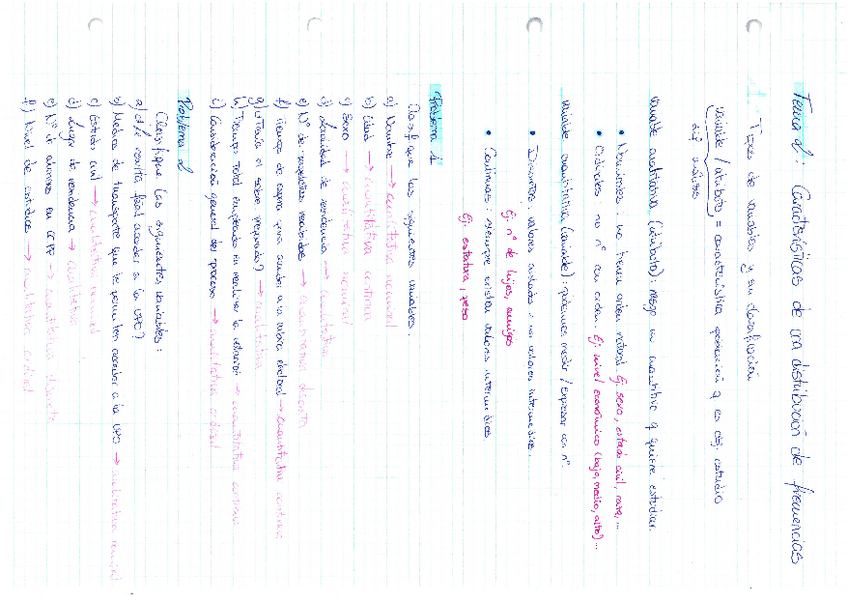 Tema 2: Características de una distribución de frecuencias
Tipos de variables y su clasificación
Variable / atributo = característica población q es obj. estudio
dif. valores
Variable cualitativa (atributo): rasgo no cuantitivo q quiere estudiar.
• Nominales: no tienen orden natural. Ej: sexo, estado civil, raza,...
• Ordinales: no nº con orden. Ej: nivel económico (bajo, medio, alto)...
Variable cuantitativa (cantidad): podemos medir / expresar con nº.
• Discretas: valores aislados, no valores intermedios.
Ej: nº de hijos, amigos
• Continuas: siempre existen valores intermedios
Ej: estatura, peso
Problema 1
Clasifique las siguientes variables.
a) Nombre → cualitativa nominal
b) Edad → cuantitativa continua
c) Sexo → cualitativa nominal
d) Localidad de residencia → cualitativa
e) Nº de recibidas → cuantitativa discreta
f) Tiempo de espera para acceder a la mesa electoral → cuantitativa continua
g) ¿Traía el sobre preparado? → cualitativa
h) Tiempo total empleado en realizar la votación → cuantitativa continua
i) Consideración general del proceso → cualitativa ordinal
Problema 2
Clasifique las siguientes variables:
a) ¿Le resulta fácil acceder a la UPO?
b) Medios de transporte que le permiten acceder a la UPO → cualitativa nominal
c) Estado civil → cualitativa nominal
d) Lugar de residencia → cualitativa
e) Nº de alumnos en CCPP → cuantitativa discreta
f) Nivel de estudios → cualitativa ordinal